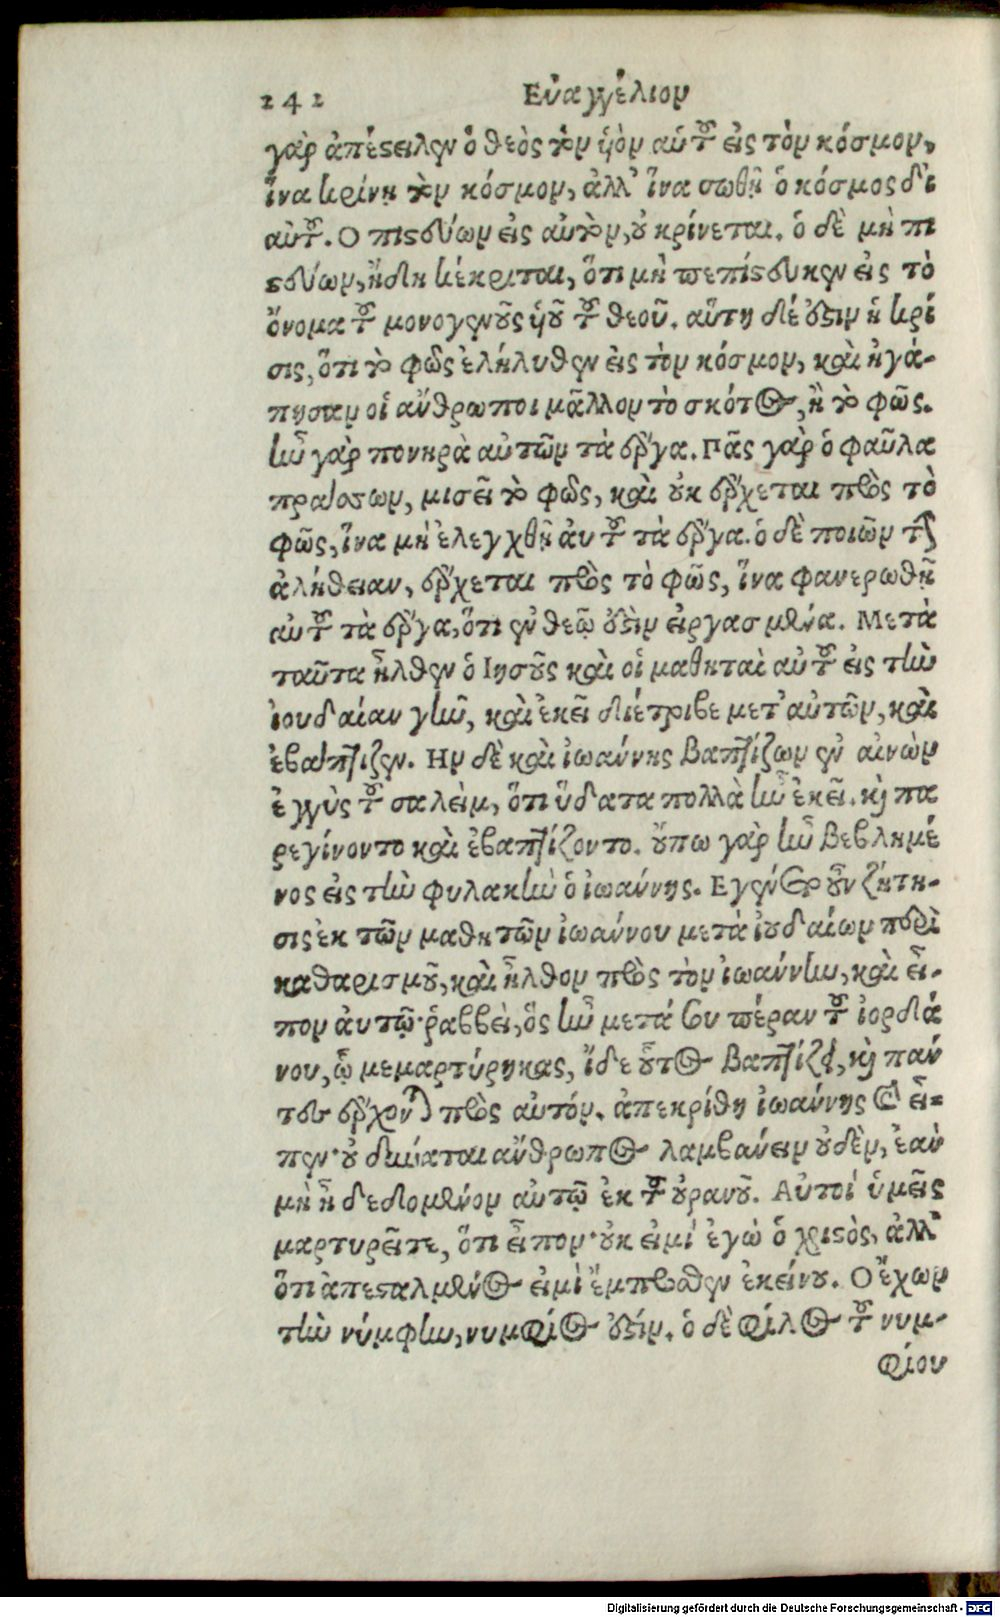 242 Εὐαγγέλιον
γὰρ ἀπέστειλεν ὁ θεὸς τὸν ὑὸν αὑτοῦ εἰς τὸν κόσμον,
ἵνα κρίνῃ τὸν κόσμον, ἀλλ' ἵνα σωθῇ ὁ κόσμος δι
αὐτοῦ. Ο πιστεύων εἰς αὐτὸν, οὐ κρίνεται. ὁ δὲ μὴ πι
στεύων, ἤδη κέκριται, ὅτι μὴ πεπίστευκεν εἰς τὸ
ὄνομα τοῦ μονογενοῦς ὑοῦ τοῦ θεοῦ. αὕτη δέ ἐστιν ἡ κρί
σις, ὅτι τὸ φῶς ἐλήλυθεν εἰς τὸν κόσμον, καὶ ἠγά-
πησαν οἱ ἄνθρωποι μᾶλλον τὸ σκότος, ἢ τὸ φῶς.
ἦν γὰρ πονηρὰ αὐτῶν τὰ ἔργα. Πᾶς γὰρ ὁ φαῦλα
πράσσων, μισεῖ τὸ φῶς, καὶ οὐκ ἔρχεται πρὸς τὸ
φῶς, ἵνα μὴ ἐλεγχθῇ αὐτοῦ τὰ ἔργα. ὁ δὲ ποιῶν τὴν
ἀλήθειαν, ἔρχεται πρὸς τὸ φῶς, ἵνα φανερωθῇ
αὐτοῦ τὰ ἔργα, ὅτι ἐν θεῷ ἐστὶν εἰργασμένα. Μετὰ
ταῦτα ἦλθεν ὁ Ιησοῦς καὶ οἱ μαθηταὶ αὐτοῦ εἰς τὴν
ἰουδαίαν γῆν, καὶ ἐκεῖ διέτριβε μετ' αὐτῶν, καὶ
ἐβάπτιζεν. Ην δὲ καὶ ἰωάννης βαπτίζων ἐν αἰνὼν
ἐγγὺς τοῦ σαλεὶμ, ὅτι ὕδατα πολλὰ ἦν ἐκεῖ. καὶ πα
ρεγίνοντο καὶ ἐβαπτίζοντο. οὔπω γὰρ ἦν βεβλημέ
νος εἰς τὴν φυλακὴν ὁ ἰωάννης. Εγένετο οὖν ζήτη-
σις ἐκ τῶν μαθητῶν ἰωάννου μετὰ ἰουδαίων περὶ
καθαρισμοῦ, καὶ ἦλθον πρὸς τὸν ἰωάννην, καὶ εἶ-
πον αὐτῷ· ῥαββεὶ, ὃς ἦν μετά σου πέραν τοῦ ἰορδά
νου, ᾧ μεμαρτύρηκας, ἴδε οὗτος βαπτίζει, καὶ πάν
τες ἔρχονται πρὸς αὐτόν. ἀπεκρίθη ἰωάννης καὶ εἶ=
πεν· οὐ δύναται ἄνθρωπος λαμβάνειν οὐδὲν, ἐὰν
μὴ ᾖ δεδομένον αὐτῷ ἐκ τοῦ οὐρανοῦ. Αὐτοί ὑμεῖς
μαρτυρεῖτε, ὅτι εἶπον· οὐκ εἰμί ἐγὼ ὁ χριστὸς, ἀλλ'
ὅτι ἀπεσταλμένος εἰμὶ ἔμπροσθεν ἐκείνου. Ο ἔχων
τὴν νύμφην, νυμφίος ἐστίν. ὁ δὲ φίλος τοῦ νυμ-
φίου
Digitalisierung gefördert durch die Deutsche Forschungsgemeinschaft - DFG